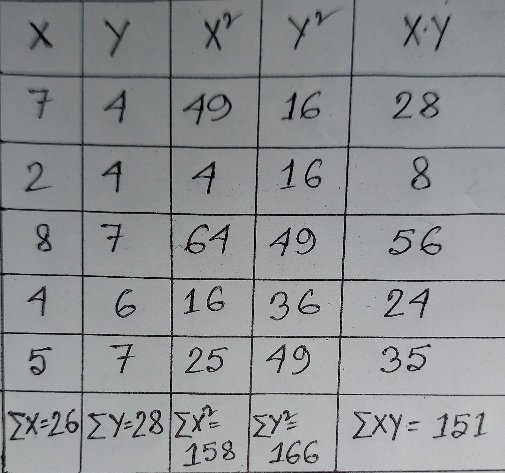 X Y X² Y² X·Y
7 4 49 16 28
2 4 4 16 8
8 7 64 49 56
4 6 16 36 24
5 7 25 49 35
ΣX=26 ΣY=28 ΣX²= 158 ΣY²= 166 ΣXY = 151